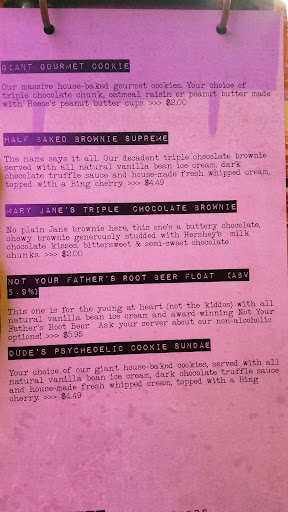 GIANT GOURMET COOKIE
Our massive house-baked gourmet cookies. Your choice of
triple chocolate chunk, oatmeal raisin or peanut butter made
with Reese's peanut butter cups >>> $2.00
HALF BAKED BROWNIE SUPREME
The name says it all. Our decadent triple chocolate brownie
served with all natural vanilla bean ice cream, dark
chocolate truffle sauce and house-made fresh whipped cream,
topped with a Bing cherry >>> $4.49
MARY JANE'S TRIPLE CHOCOLATE BROWNIE
No plain Jane brownie here, this one's a buttery chocolate,
chewy brownie generously studded with Hershey's milk
chocolate kisses, bittersweet & semi-sweet chocolate
chunks. >>> $2.00
NOT YOUR FATHER'S ROOT BEER FLOAT (ABV
5.9%)
This one is for the young at heart (not the kiddos) with all
natural vanilla bean ice cream and award-winning Not Your
Father's Root Beer. Ask your server about our non-alcoholic
options! >>> $5.95
DUDE'S PSYCHEDELIC COOKIE SUNDAE
Your choice of our giant house-baked cookies, served with all
natural vanilla bean ice cream, dark chocolate truffle sauce
and house-made fresh whipped cream, topped with a Bing
cherry >>> $4.49